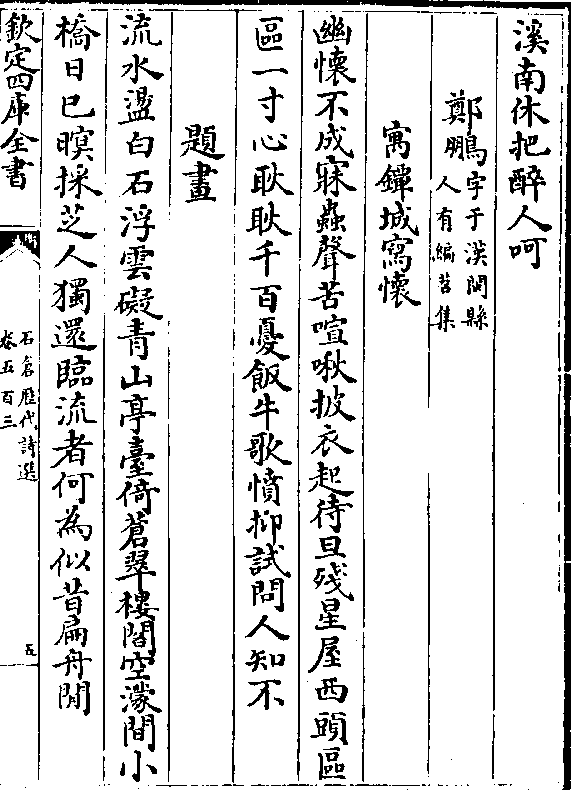 溪南休把醉人呵
鄭鵬字于漢閩縣
人有編苕集
寓鐔城寫懷
幽懷不成寐蟲聲苦喧啾披衣起待旦殘星屋西頭區
區一寸心耿耿千百憂飯牛歌憤抑試問人知不
題畫
流水盪白石浮雲礙青山亭臺倚蒼翠樓閣空濛間小
橋日已暝採芝人獨還臨流者何為似昔扁舟閒
欽定四庫全書
石倉歷代詩選
卷五百三
五